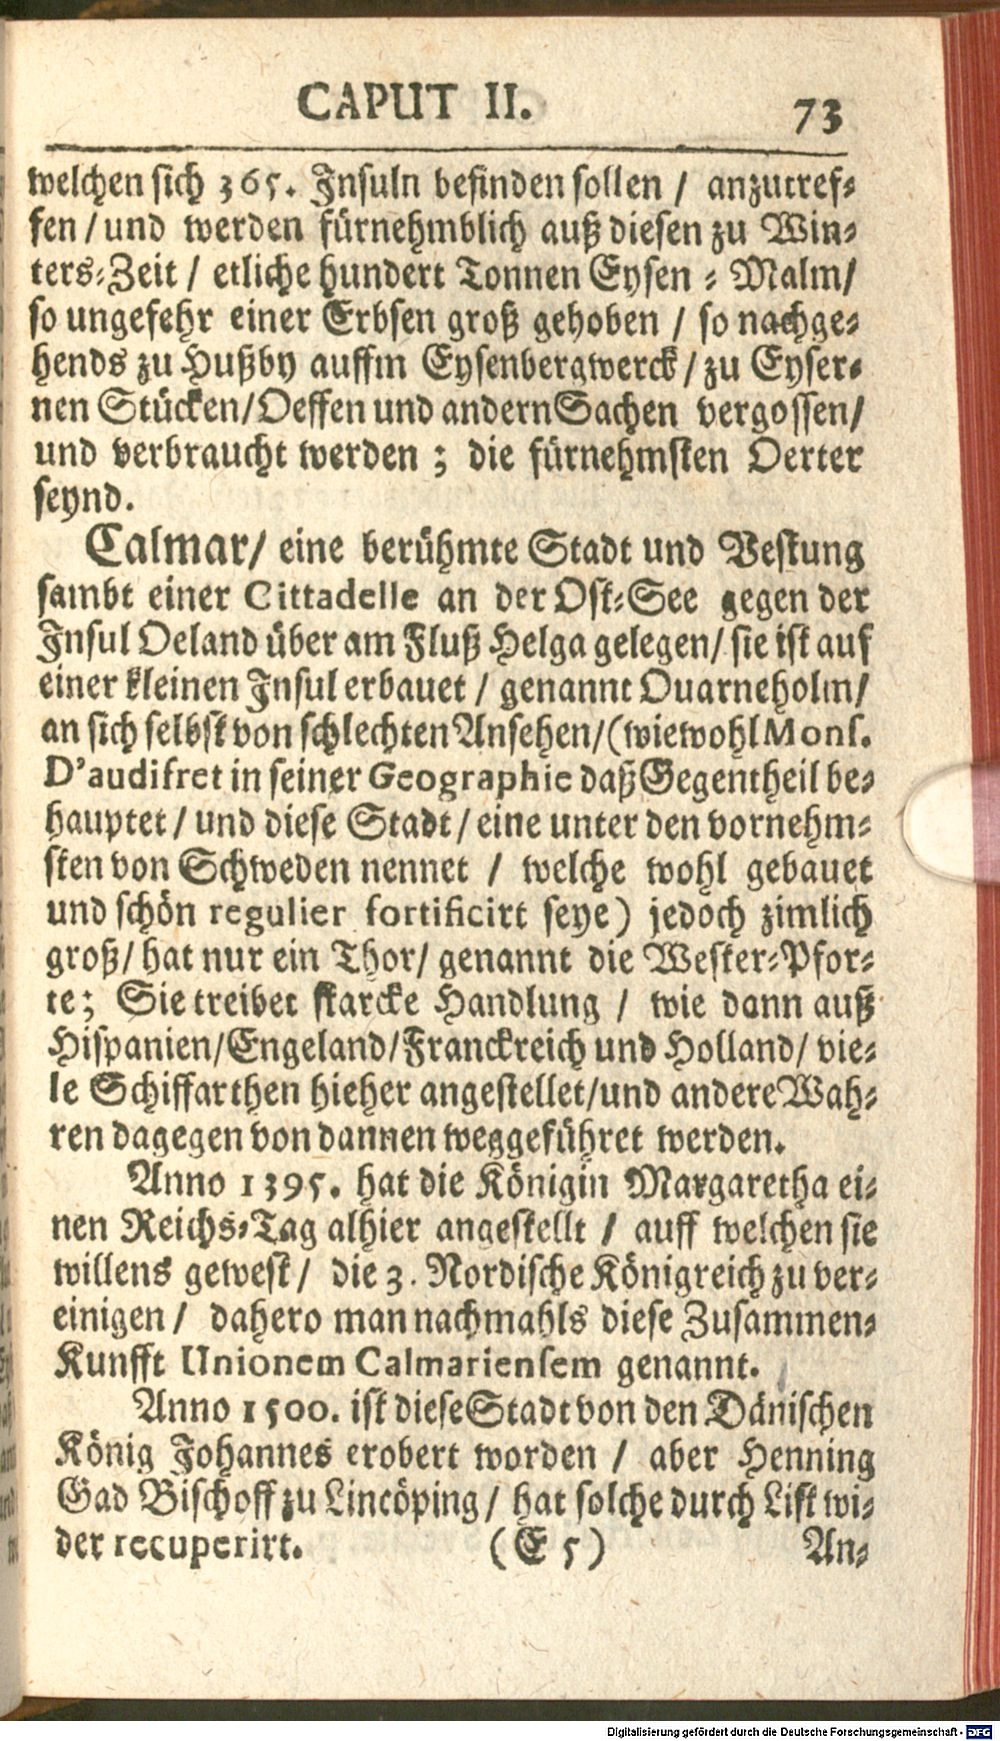 CAPUT II. 73
welchen sich 365. Insuln befinden sollen / anzutref-
fen / und werden fürnehmblich auß diesen zu Win-
ters-Zeit / etliche hundert Tonnen Eysen - Malm /
so ungefehr einer Erbsen groß gehoben / so nachge-
hends zu Hußby auffm Eysenbergwerck / zu Eyser-
nen Stücken / Oeffen und andern Sachen vergossen /
und verbraucht werden ; die fürnehmsten Oerter
seynd.
Calmar / eine berühmte Stadt und Vestung
sambt einer Cittadelle an der Ost-See gegen der
Insul Oeland über am Fluß Helga gelegen / sie ist auf
einer kleinen Insul erbauet / genannt Quarneholm /
an sich selbst von schlechten Ansehen / (wiewohl Mons.
D'audifret in seiner Geographie daß Gegentheil be-
hauptet / und diese Stadt / eine unter den vornehm-
sten von Schweden nennet / welche wohl gebauet
und schön regulier fortificirt seye) jedoch zimlich
groß / hat nur ein Thor / genannt die Wester-Pfor-
te ; Sie treibet starcke Handlung / wie dann auß
Hispanien / Engeland / Franckreich und Holland / vie-
le Schiffarthen hieher angestellet / und andere Wah-
ren dagegen von dannen weggeführet werden.
Anno 1395. hat die Königin Margaretha ei-
nen Reichs-Tag alhier angestellt / auff welchen sie
willens gewest / die 3. Nordische Königreich zu ver-
einigen / dahero man nachmahls diese Zusammen-
Kunfft Unionem Calmariensem genannt.
Anno 1500. ist diese Stadt von den Dänischen
König Johannes erobert worden / aber Henning
Gad Bischoff zu Lincöping / hat solche durch List wi-
der recuperirt. (E 5) An-
Digitalisierung gefördert durch die Deutsche Forschungsgemeinschaft - DFG